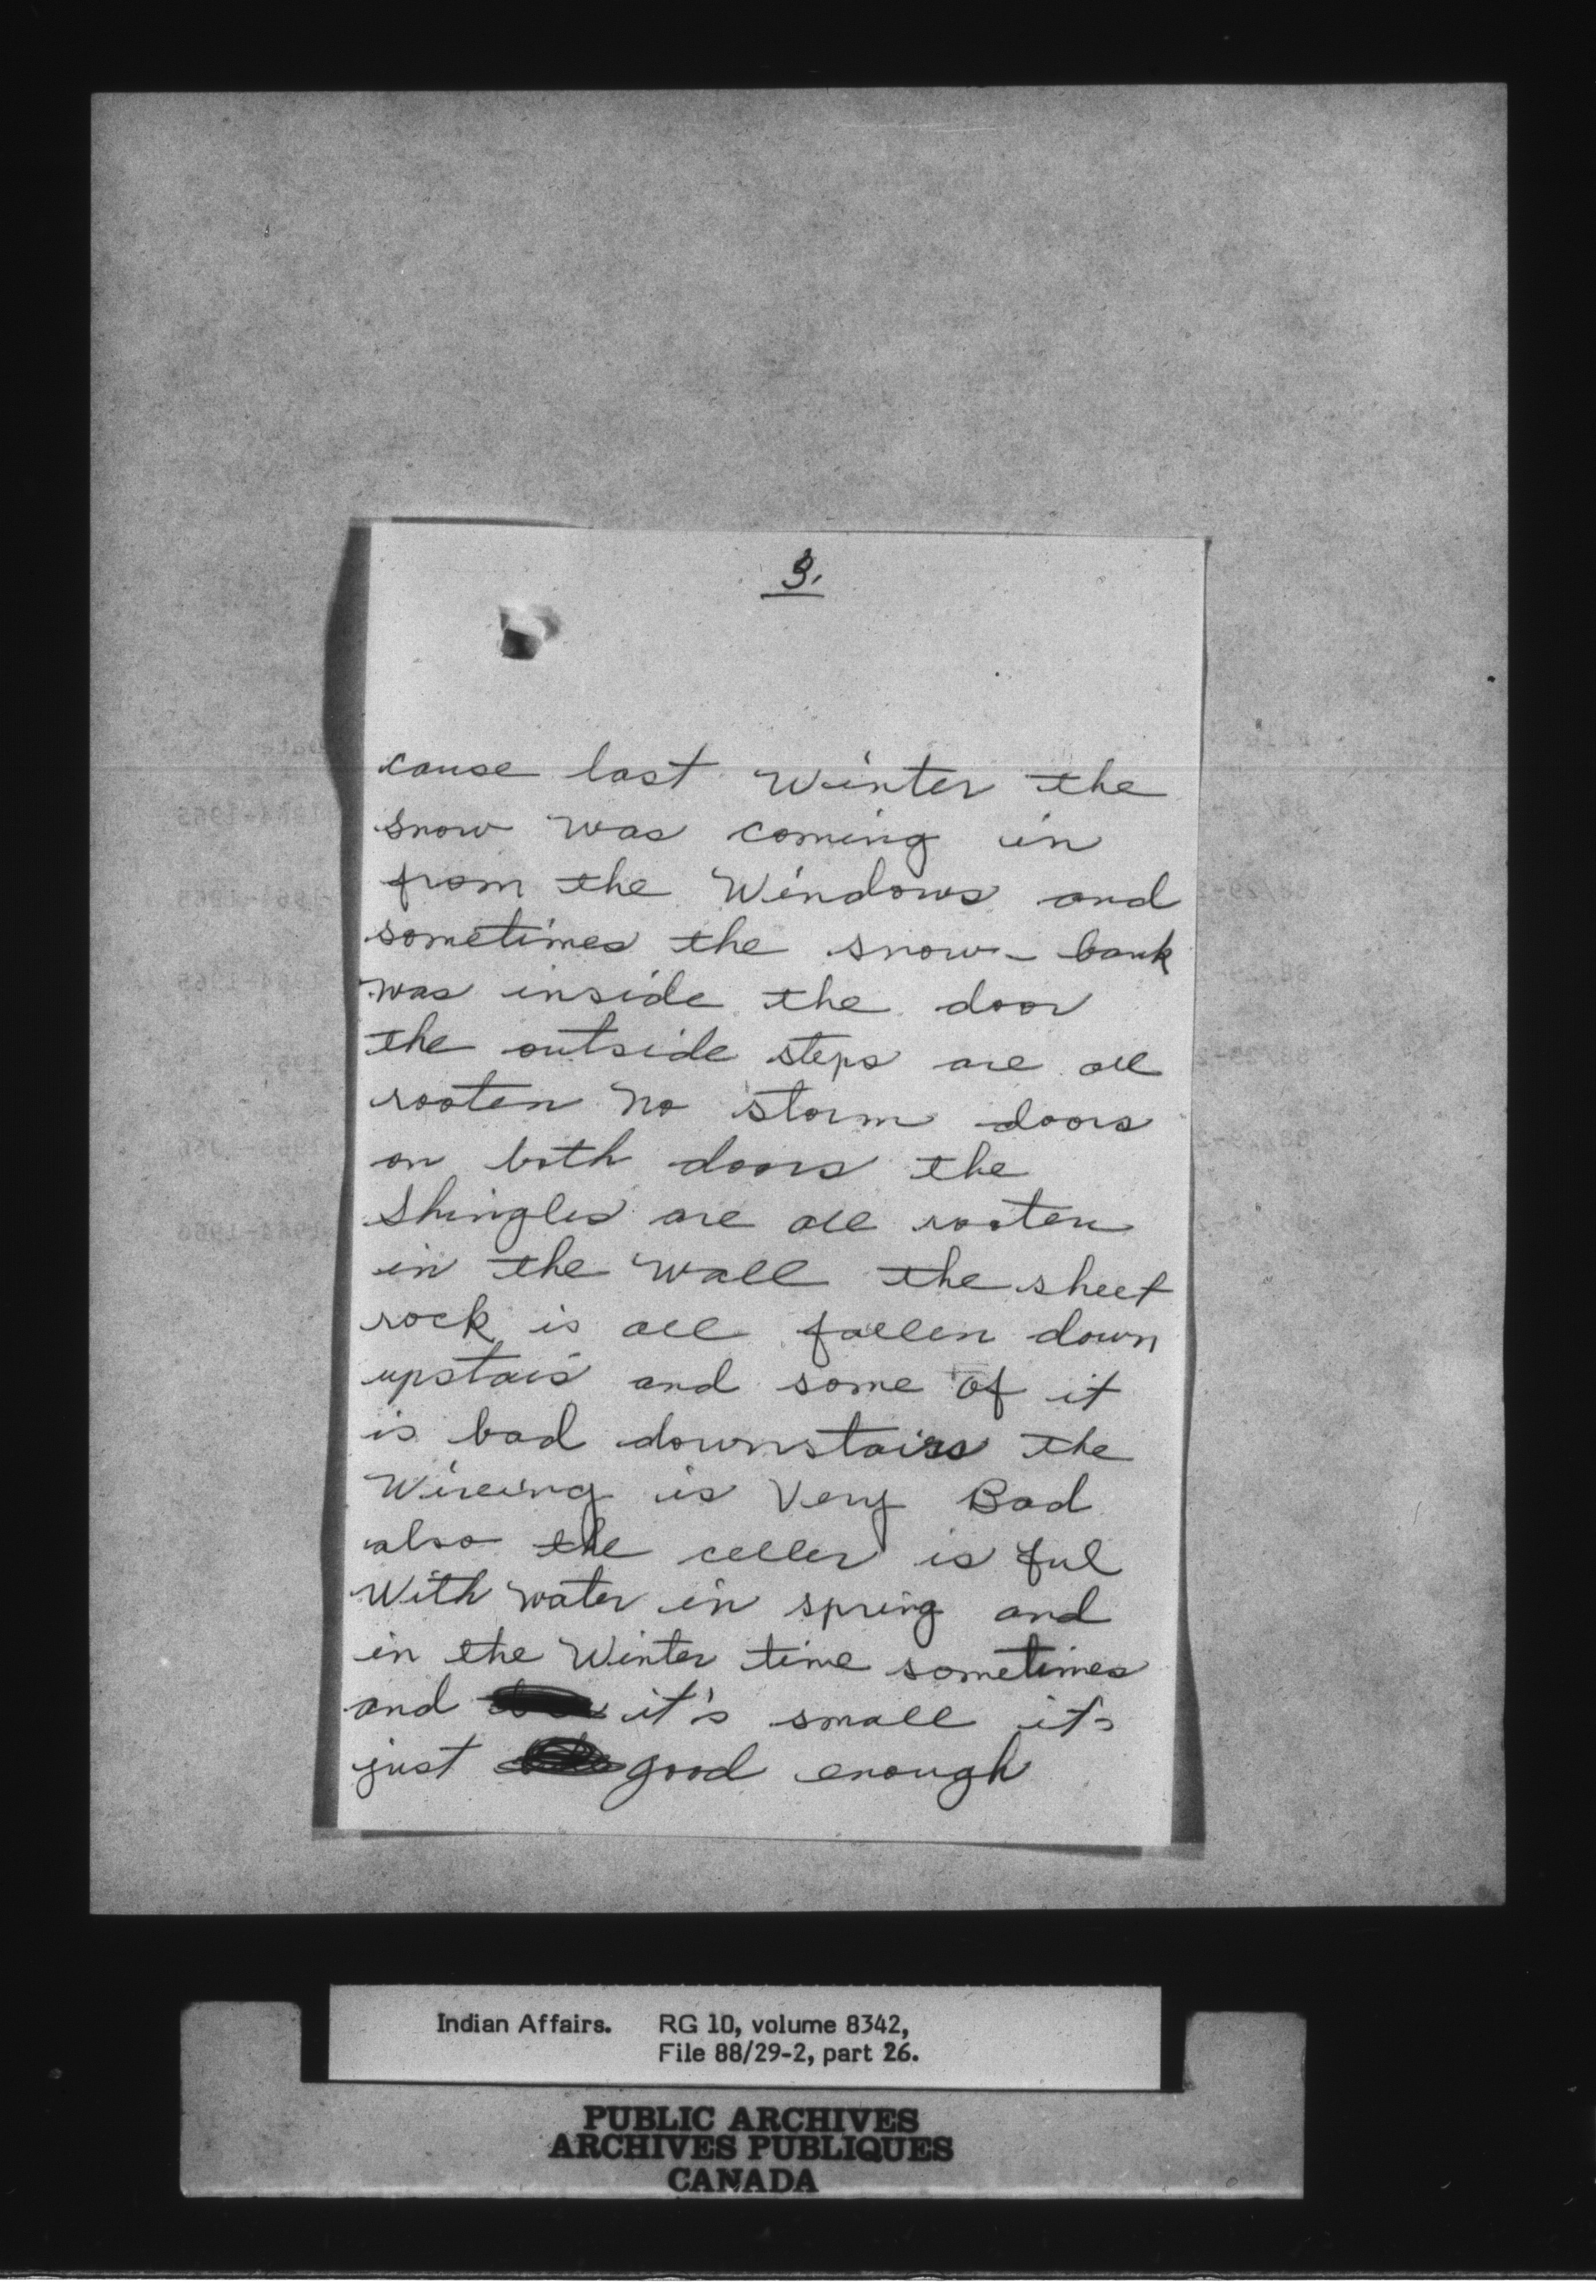 3.
cause last Winter the
snow was coming in
from the Windows and
sometimes the snow-bank
was inside the door
the outside steps are all
rooten no storm doors
on both doors the
Shingles are all rooten
in the wall the sheet
rock is all fallen down
upstais and some of it
is bad downstairs the
Wireing is Very Bad
also the celler is ful
With water in spring and
in the Winter time sometimes
and it's small its
just good enough
Indian Affairs. RG 10, volume 8342,
File 88/29-2, part 26.
PUBLIC ARCHIVES
ARCHIVES PUBLIQUES
CANADA